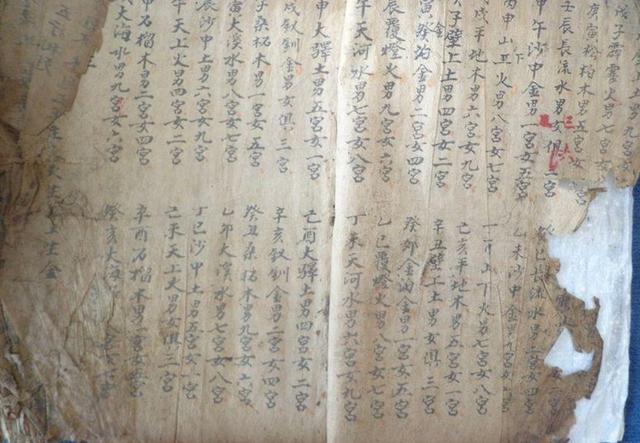 戊子霹靂火男七宮女
庚寅松柏木男
壬辰長流水男女俱三宮
甲午沙中金男一宮女五宮
丙申山下火男八宮女七宮
戊戌平地木男六宮女九宮
子壁上土男四宮女二宮
寅金泊金男二宮女四宮
辰覆燈火男九宮女六宮
午天河水男七宮女八宮
申大驛土男五宮女一宮
戌釵釧金男女俱三宮
子桑柘木男一宮女五宮
大溪水男八宮女七宮
辰沙中土男六宮女九宮
午天上火男四宮女二宮
申石榴木男二宮女四宮
大海水男九宮女六宮
巳長流水男二宮女四宮
乙未沙中金男九宮女
丁酉山下火男七宮女八宮
己亥平地木男五宮女一宮
辛丑壁上土男女俱三宮
癸卯金泊金男一宮女五宮
乙巳覆燈火男八宮女七宮
丁未天河水男六宮女九宮
己酉大驛土男四宮女二宮
辛亥釵釧金男二宮女四宮
癸丑桑柘木男九宮女六宮
乙卯大溪水男七宮女八宮
丁巳沙中土男五宮女一宮
己未天上火男女俱三宮
辛酉石榴木男一宮女五宮
癸亥大海水男八宮女七宮